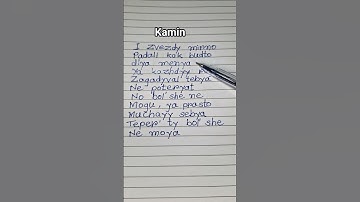 Kamin
I zvezdy mimo
Padali kak budto
dlya menya
Ya kazhdyy
Zagadyval tebya
Ne poteryat
No bol'she ne
Mogu, ya prosto
Muchayy sebya
Teper' ty bol'she
Ne moya